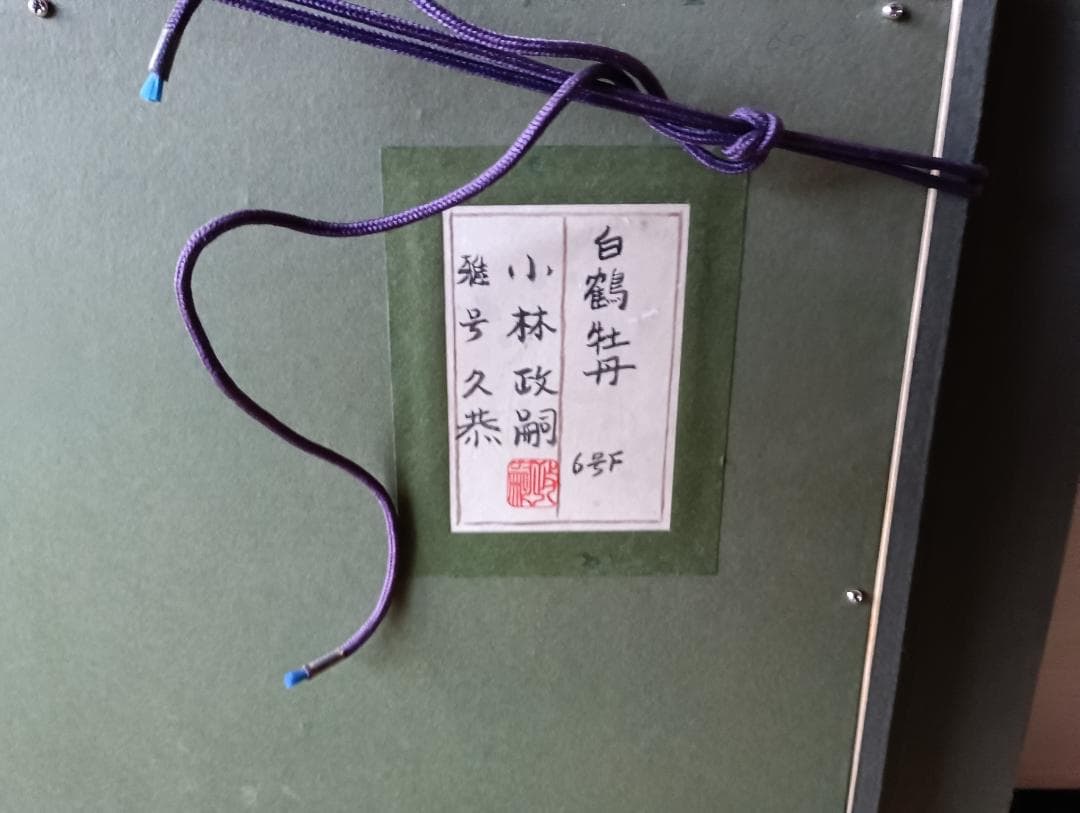 白鶴牡丹
6号F
小林政嗣
雅号久恭